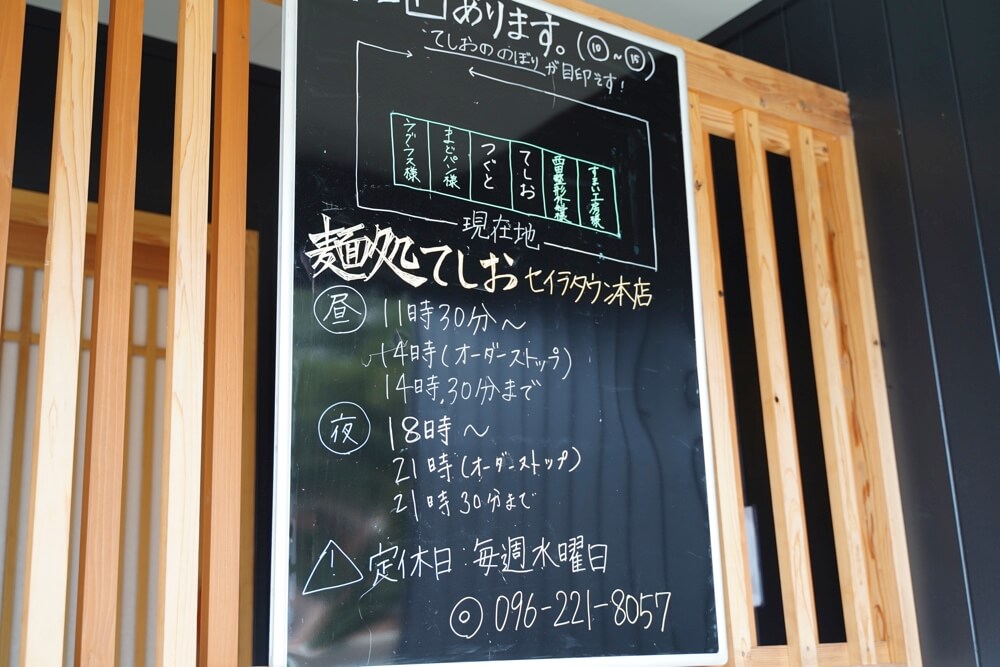 あります。(⑩~⑮)
てしおの のぼりが目印です!
まどパン様
つぐと
てしお
西田整形外科様
すまい工房様
現在地
麺処てしお セイラタウン本店
昼 11時30分~
14時(オーダーストップ)
14時30分まで
夜 18時~
21時(オーダーストップ)
21時30分まで
定休日:毎週水曜日
◎ 096-221-8057